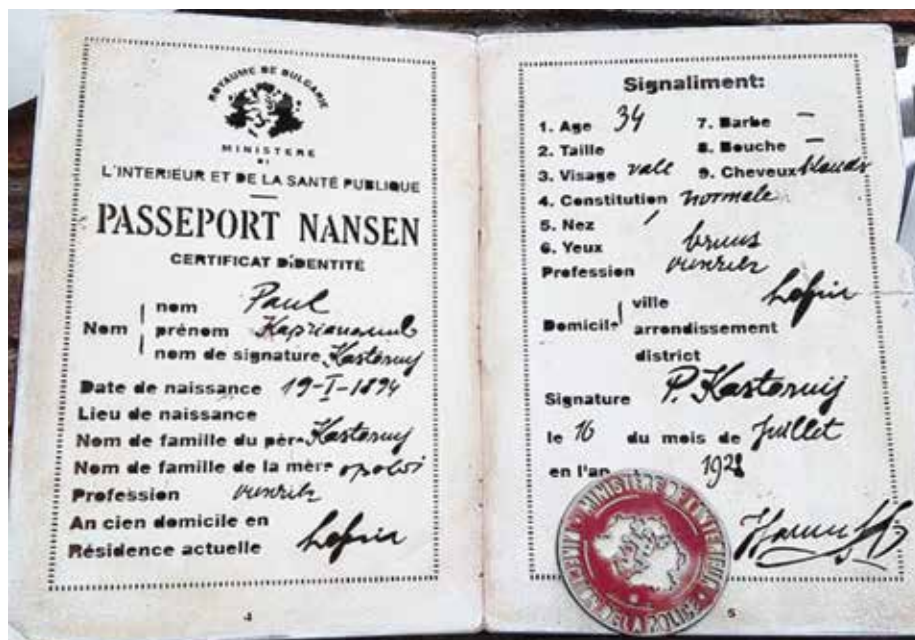 ROYAUME DE BULGARIE
MINISTERE
DI
L'INTERIEUR ET DE LA SANTÉ PUBLIQUE
PASSEPORT NANSEN
CERTIFICAT D'IDENTITÉ
Nom
nom Paul
prénom
nom de signature Kasteruij
Date de naissance 19-I-1894
Lieu de naissance
Nom de famille du pèr- Kasteruij
Nom de famille de la mère
Profession
An cien domicile en
Résidence actuelle
4
Signaliment:
1. Age 34
2. Taille
3. Visage
4. Constitution normale
5. Nez /
6. Yeux bruns
7. Barbe –
8. Bouche –
9. Cheveux
Profession
Domicile
ville
arrondissement
district
Signature P. Kasteruij
le 16 du mois de Juillet
en l'an 1928
MINISTÈRE DE
DE LA POLICE
5